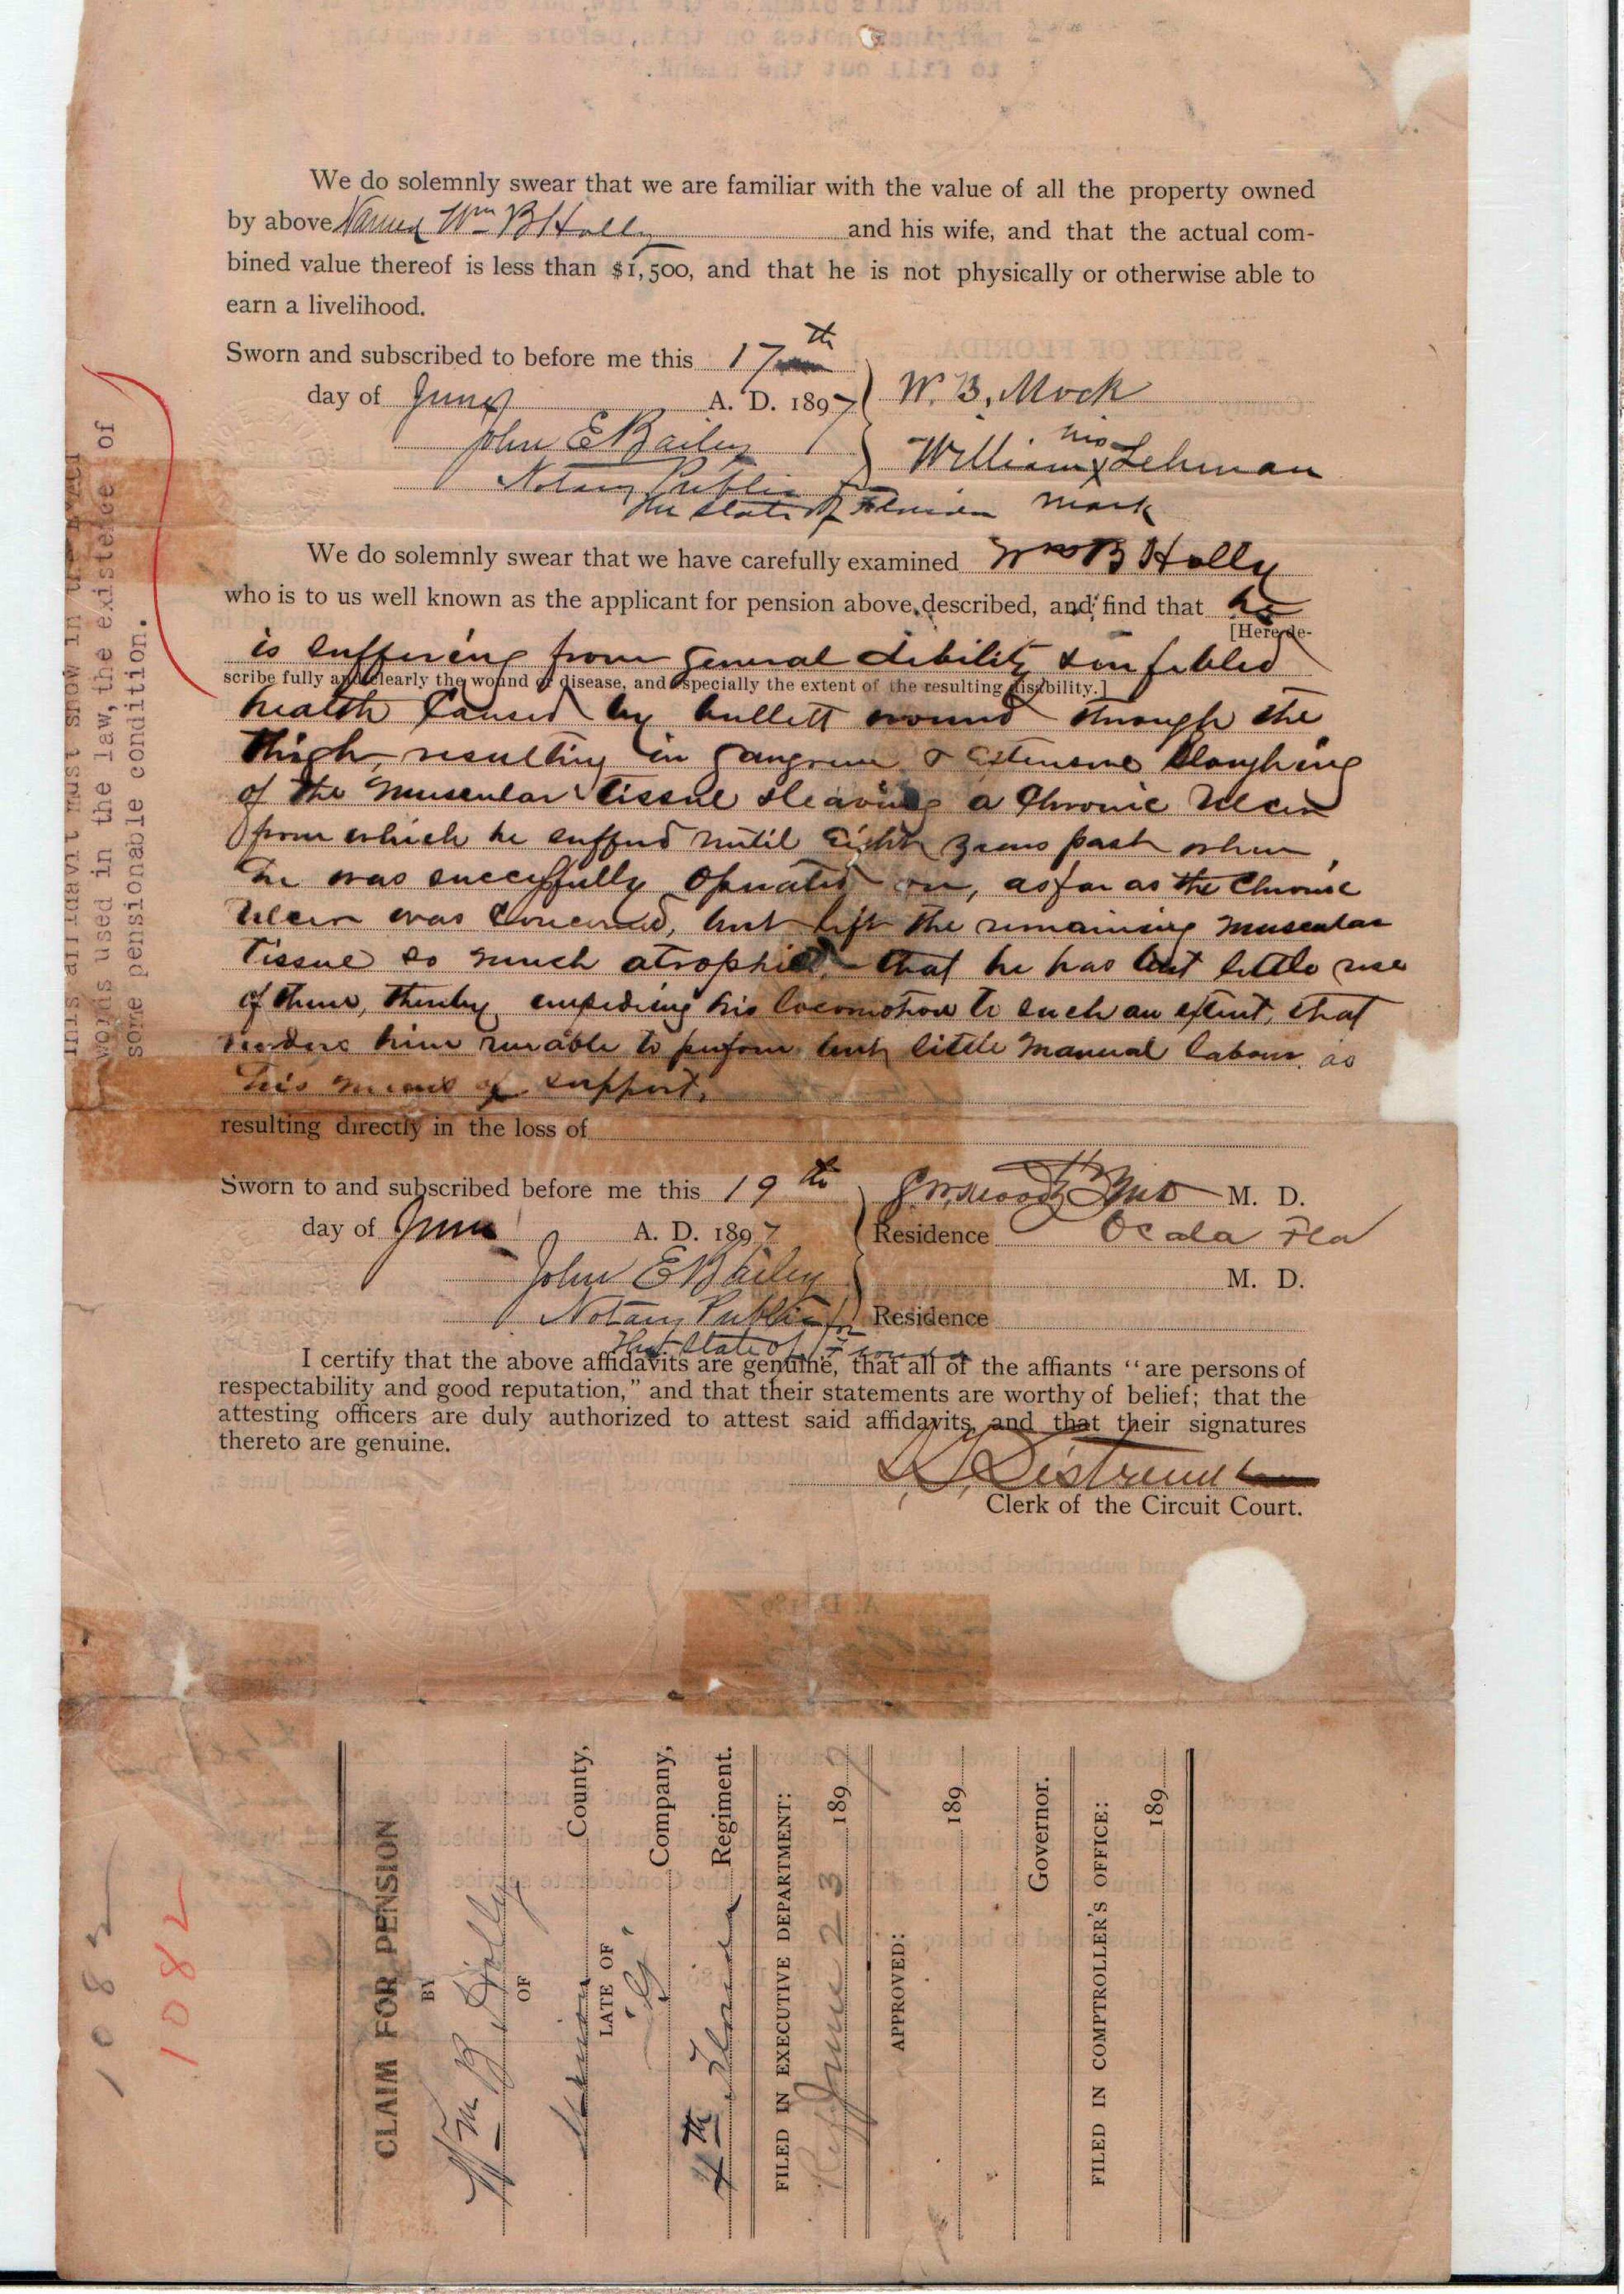 We do solemnly swear that we are familiar with the value of all the property owned
by above Named Wm B Holly and his wife, and that the actual com-
bined value thereof is less than $1,500, and that he is not physically or otherwise able to
earn a livelihood.
Sworn and subscribed to before me this 17th
day of June A. D. 1897
W. B. Mock
John E Bailey
his
William x Lehman
mark
Notary Public
the State of Florida
This affidavit must show in the exact
words used in the law, the existence of
some pensionable condition.
We do solemnly swear that we have carefully examined Wm B Holly
who is to us well known as the applicant for pension above described, and find that he
[Here de-
is suffering from general dibility & infebled
scribe fully and clearly the wound or disease, and especially the extent of the resulting disability.]
health Caused by bullett wound through the
thigh, resulting in gangrene & extensive sloughing
of the muscular tissue & leaving a Chronic Ulcer
from which he suffered until eight years past when
he was successfully operated on, as far as the Chronic
Ulcer was concerned, but left the remaining muscular
tissue so much atrophied, that he has but little use
of them, thereby impeding his locomotion to such an extent, that
renders him unable to perform but little manual labour as
his means of support.
resulting directly in the loss of
Sworn to and subscribed before me this 19th
M. D.
day of June A. D. 1897
Residence Ocala Fla
John E Bailey
M. D.
Notary Public for
Residence
the State of Florida
I certify that the above affidavits are genuine, that all of the affiants "are persons of
respectability and good reputation," and that their statements are worthy of belief; that the
attesting officers are duly authorized to attest said affidavits, and that their signatures
thereto are genuine.
Clerk of the Circuit Court.
1082
1082
CLAIM FOR PENSION
BY
Wm B. Holly
OF
Marion County,
LATE OF
"G" Company,
4th Florida Regiment.
FILED IN EXECUTIVE DEPARTMENT:
June 23 1897
APPROVED:
189
Governor.
FILED IN COMPTROLLER'S OFFICE:
189